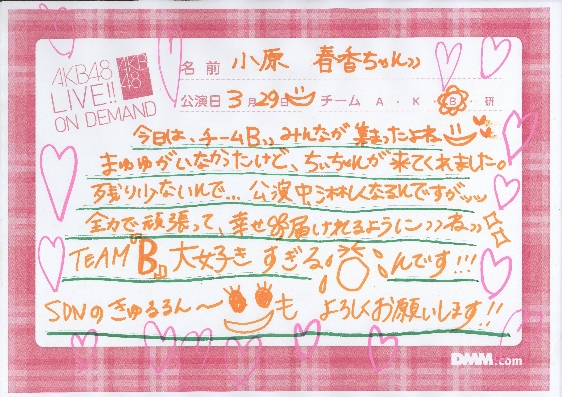 AKB48
LIVE!!
ON DEMAND
AKB
48
名前 小原 春香ちゃん》
公演日 3月29日 チーム A・K・B・研
今日は、チームB》みんなが集まったよね
まゆゆがいなかったけど、ちぃちゃんが来てくれました。
残り少ないんで…公演中淋しくなるんですがッッ
全力で頑張って、幸せお届けれるように》ね》
TEAM『B』大好きすぎるんです!!!
SDNのきゅるるん〜も よろしくお願いします!!
DMM.com